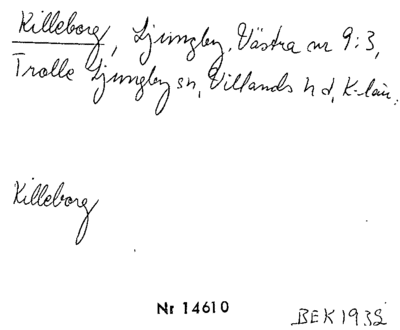 Killeborg, Ljungby, Västra nr 9:3,
Trolle Ljungby sn, Villands hd, K-län.
Killeborg
Nr 14610
BEK 1932